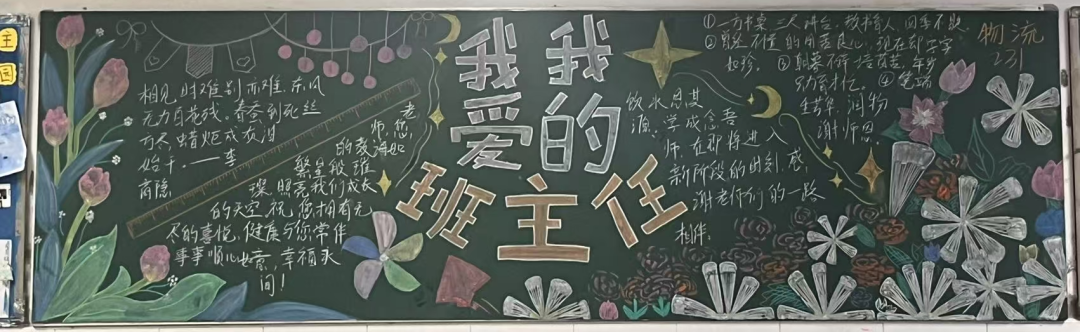 我我
爱的
班主任
相见时难别亦难,东风
无力百花残。春蚕到死丝
方尽,蜡炬成灰泪
始干。——李
商隐
老
师,您
的教诲如
繁星般璀
璨,照亮我们成长
的天空,祝您拥有无
尽的喜悦,健康与您常伴
事事顺心如意,幸福永
间!
饮水思其
源,学成念吾
师,在即将进入
新阶段的时刻,感
谢老师们的一路
相伴。
①一方书桌,三尺讲台,教书育人,四季不息
②曾经不懂的用苦良心,现在却字字
如珍。③
④笔路
生芳华,润物
谢师恩。
物流
231
主
园